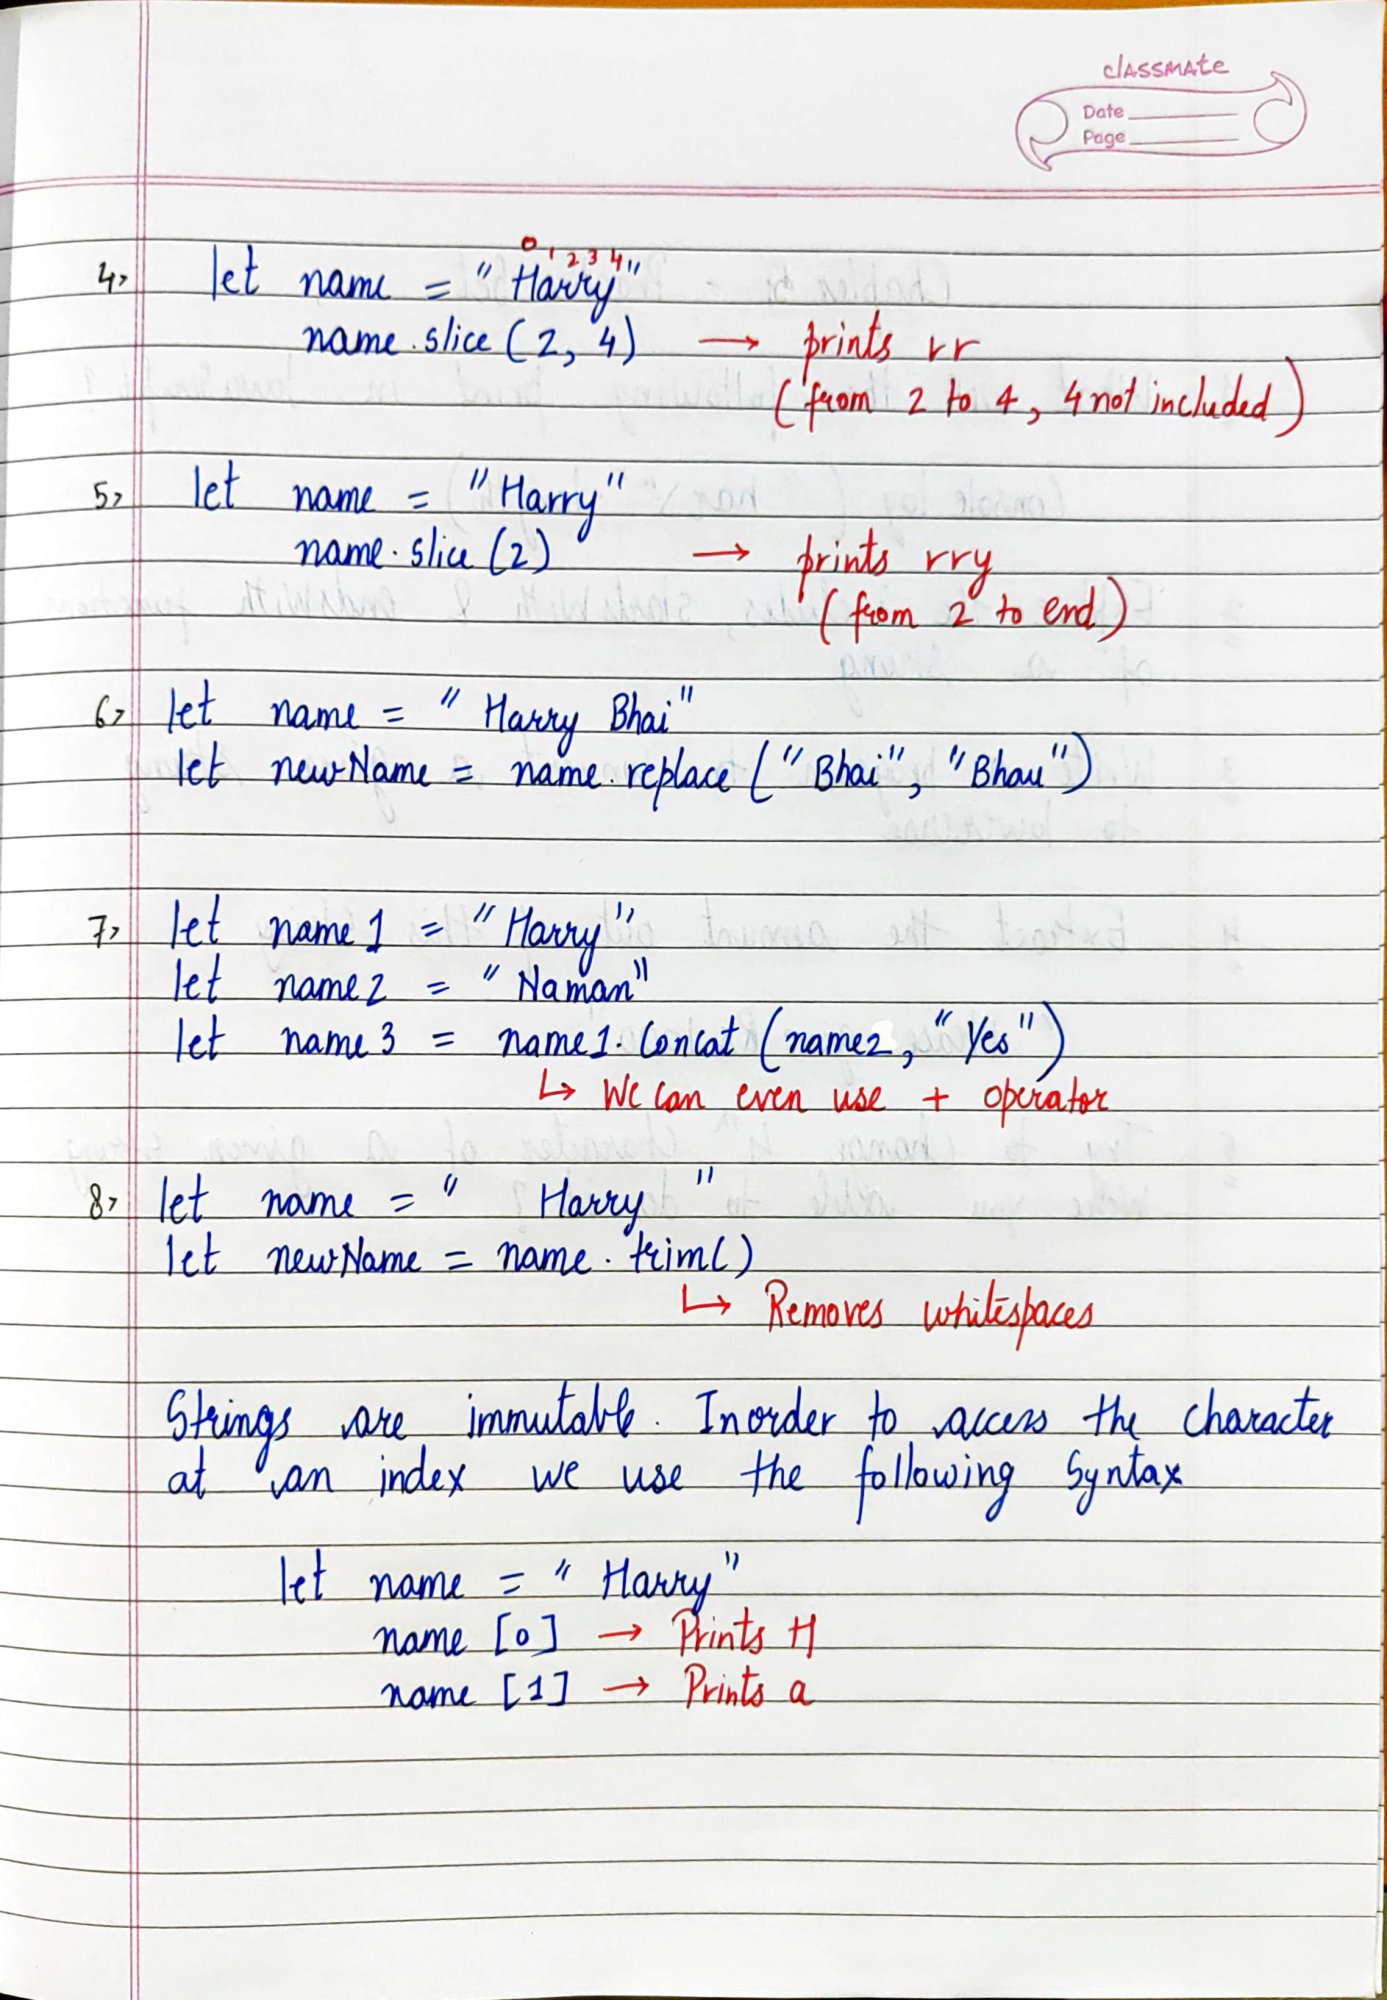 classmate
Date
Page
0 1 2 3 4
4> let name = "Harry"
name.slice(2, 4) → prints rr
(from 2 to 4, 4 not included)
5> let name = "Harry"
name.slice(2) → prints rry
(from 2 to end)
6> let name = "Harry Bhai"
let newName = name.replace("Bhai", "Bhau")
7> let name1 = "Harry"
let name2 = "Naman"
let name3 = name1.Concat(name2, "Yes")
↳ We can even use + operator
8> let name = " Harry "
let newName = name.trim()
↳ Removes whitespaces
Strings are immutable. Inorder to access the character
at an index we use the following Syntax
let name = "Harry"
name [0] → Prints H
name [1] → Prints a